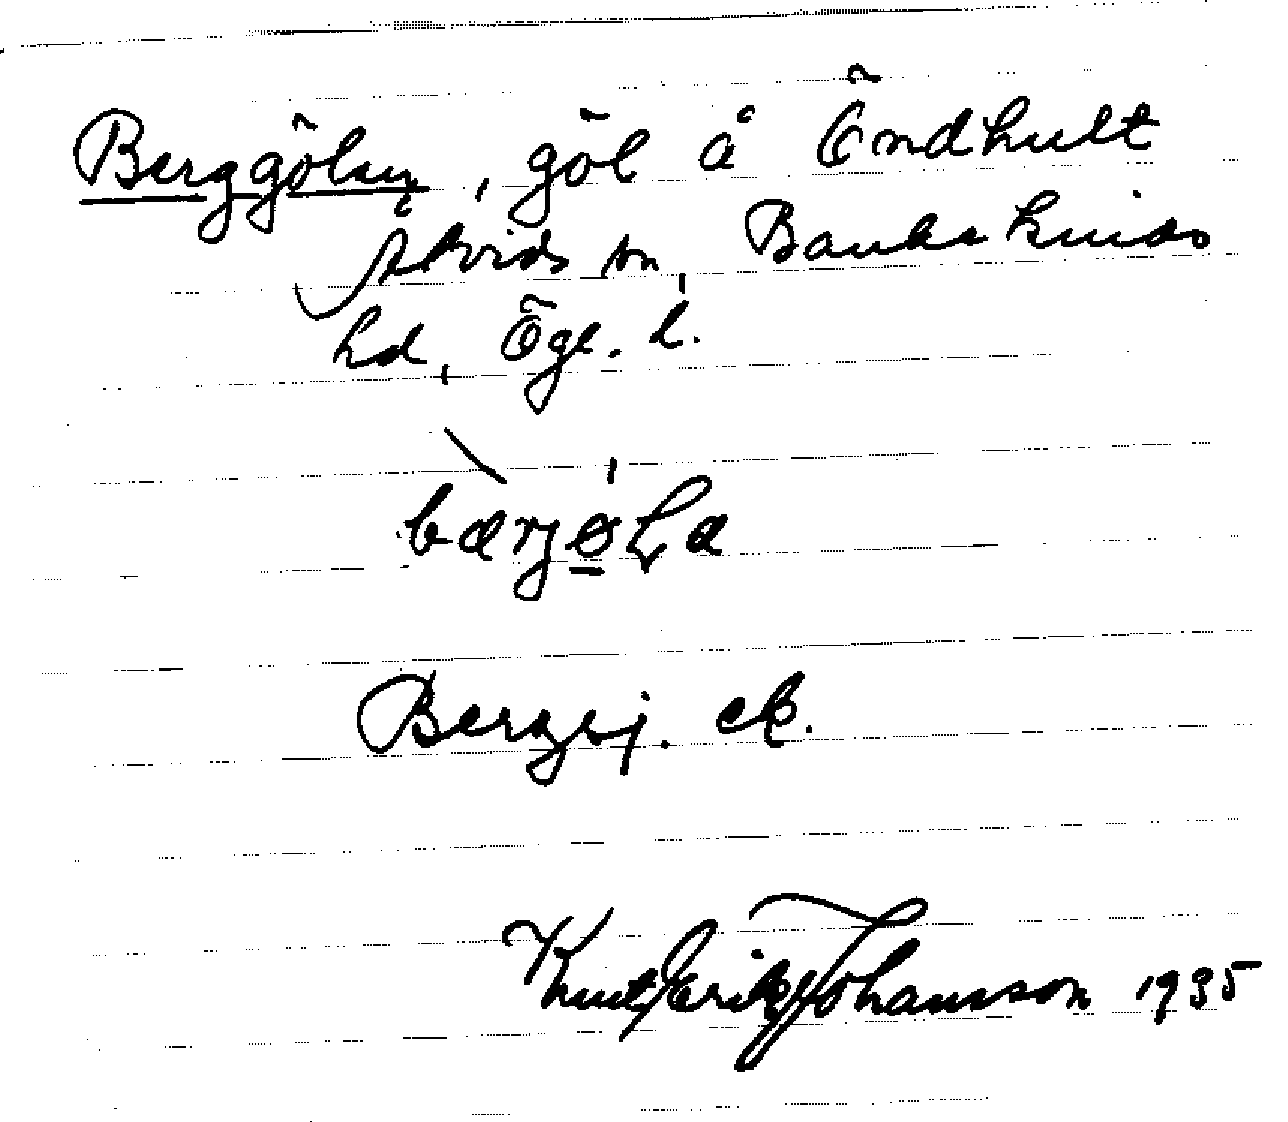 Berggölen, göl å Öndhult
Åtvids sn, Bankekinds
hd, Ögl. l.
bærjøLa
Bergej. ek.
Knut Erik Johansson 1935